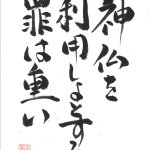 神仏を
利用しょとする
罪は重い